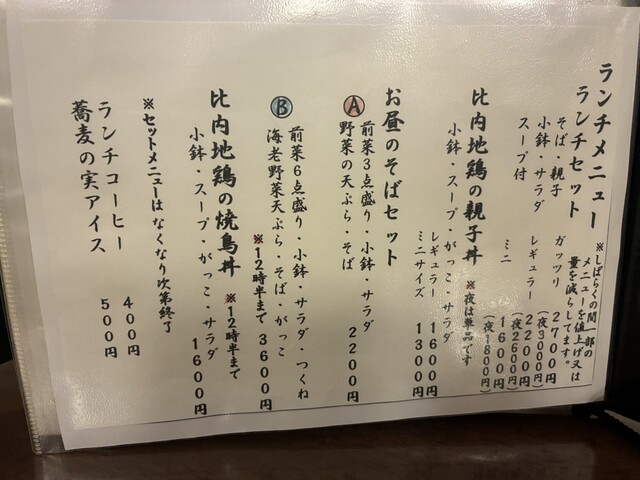 ランチメニュー
※しばらくの間一部の
メニューを値上げ又は
量を減らしてます。
ランチセット
そば・親子 ガッツリ 2700円
(夜3000円)
小鉢・サラダ レギュラー 2200円
(夜2600円)
スープ付 ミニ 1600円
(夜1800円)
比内地鶏の親子丼 ※夜は単品です
小鉢・スープ・がっこ・サラダ
レギュラー 1600円
ミニサイズ 1300円
お昼のそばセット
A 前菜3点盛り・小鉢・サラダ
野菜の天ぷら・そば 2200円
B 前菜6点盛り・小鉢・サラダ・つくね
海老野菜天ぷら・そば・がっこ
※12時半まで 3600円
比内地鶏の焼鳥丼 ※12時半まで
小鉢・スープ・がっこ・サラダ 1600円
※セットメニューはなくなり次第終了
ランチコーヒー 400円
蕎麦の実アイス 500円